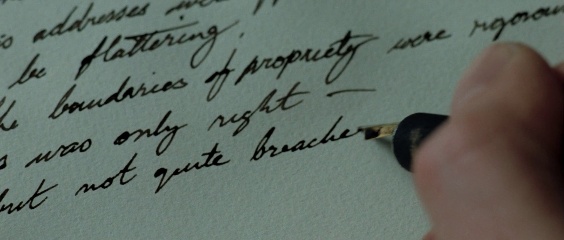 s addresses were
be flattering,
he boundaries of propriety were rigorous
s was only right —
but not quite breache